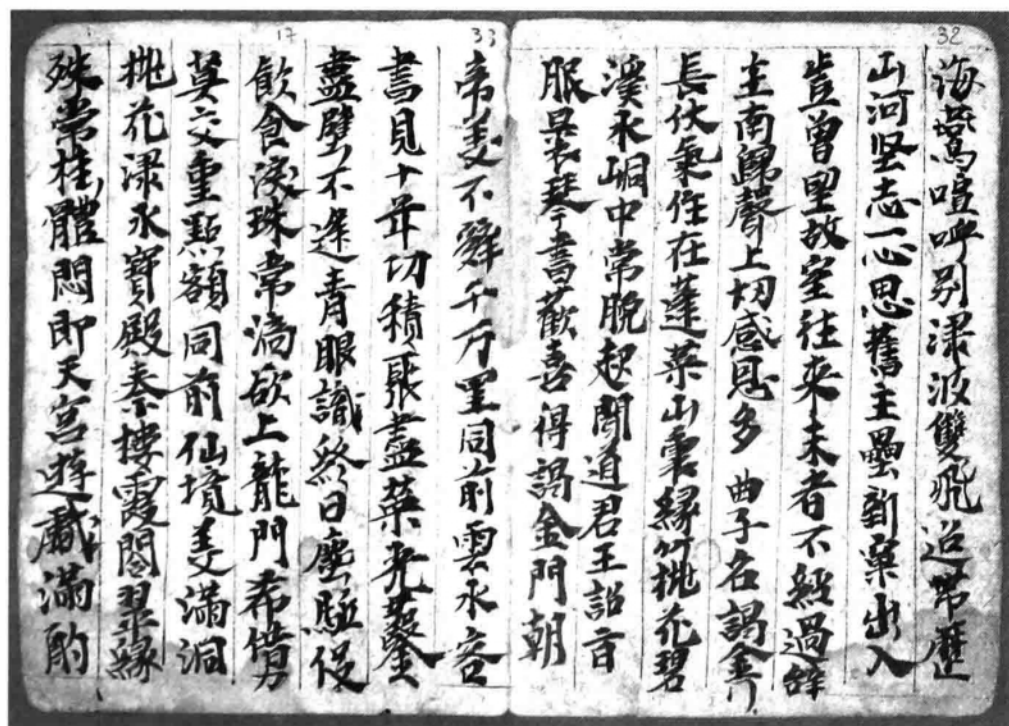 32
海鷰喧呼別淥波雙飛迢帶歷
山河坚志一心思舊主壘新巢出入
豈曾望故室往來未者不經過辞
主南歸聲上切感恩多 曲子名謁金門
長伏氣住在蓬萊山裏緑竹桃花碧
溪水峒中常晚起聞道君王詔旨
服裹琴書歡喜得謁金門朝
33
帝美不辞千万里同前雲水客
書見十年功積聚盡螢光鑿
盡壁不逢青眼識終日塵駈役
17
飲食淚珠常滴欲上龍門希借力
莫交重點額同前仙境美滿洞
桃花淥水寶殿秦樓霞閣翠緣
殊常桂體悶即天宮遊戲滿酌